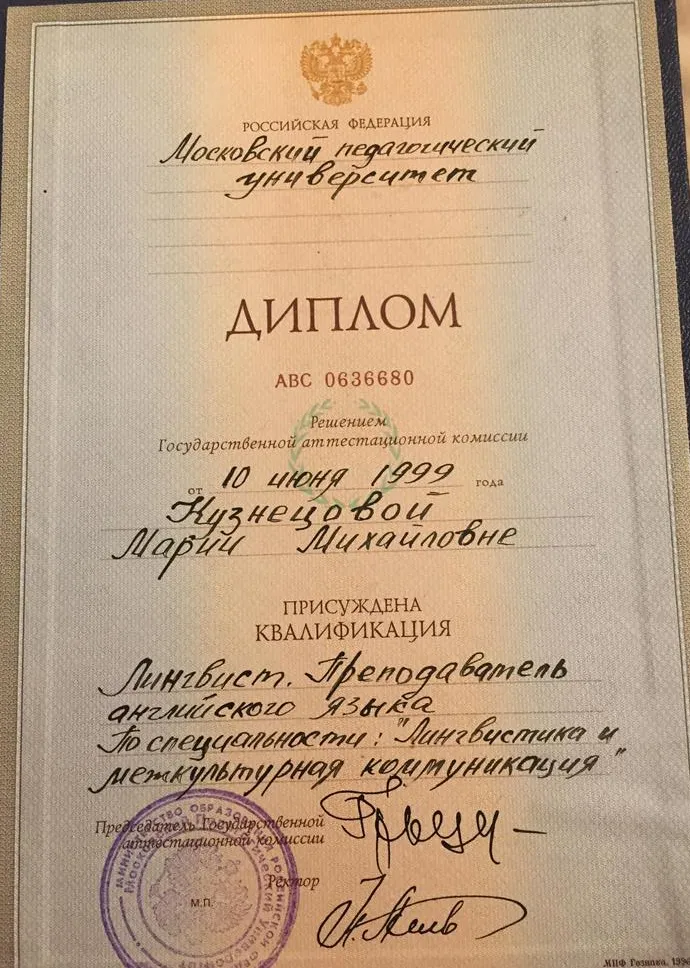 РОССИЙСКАЯ ФЕДЕРАЦИЯ
Московский педагогический
университет
ДИПЛОМ
АВС 0636680
Решением
Государственной аттестационной комиссии
от 10 июня 1999 года
Кузнецовой
Марии Михайловне
ПРИСУЖДЕНА
КВАЛИФИКАЦИЯ
Лингвист. Преподаватель
английского языка
По специальности: "Лингвистика и
межкультурная коммуникация"
Председатель Государственной
аттестационной комиссии
Ректор
М.П.
МИНИСТЕРСТВО ОБРАЗОВАНИЯ РОССИЙСКОЙ
МПФ Гознака.